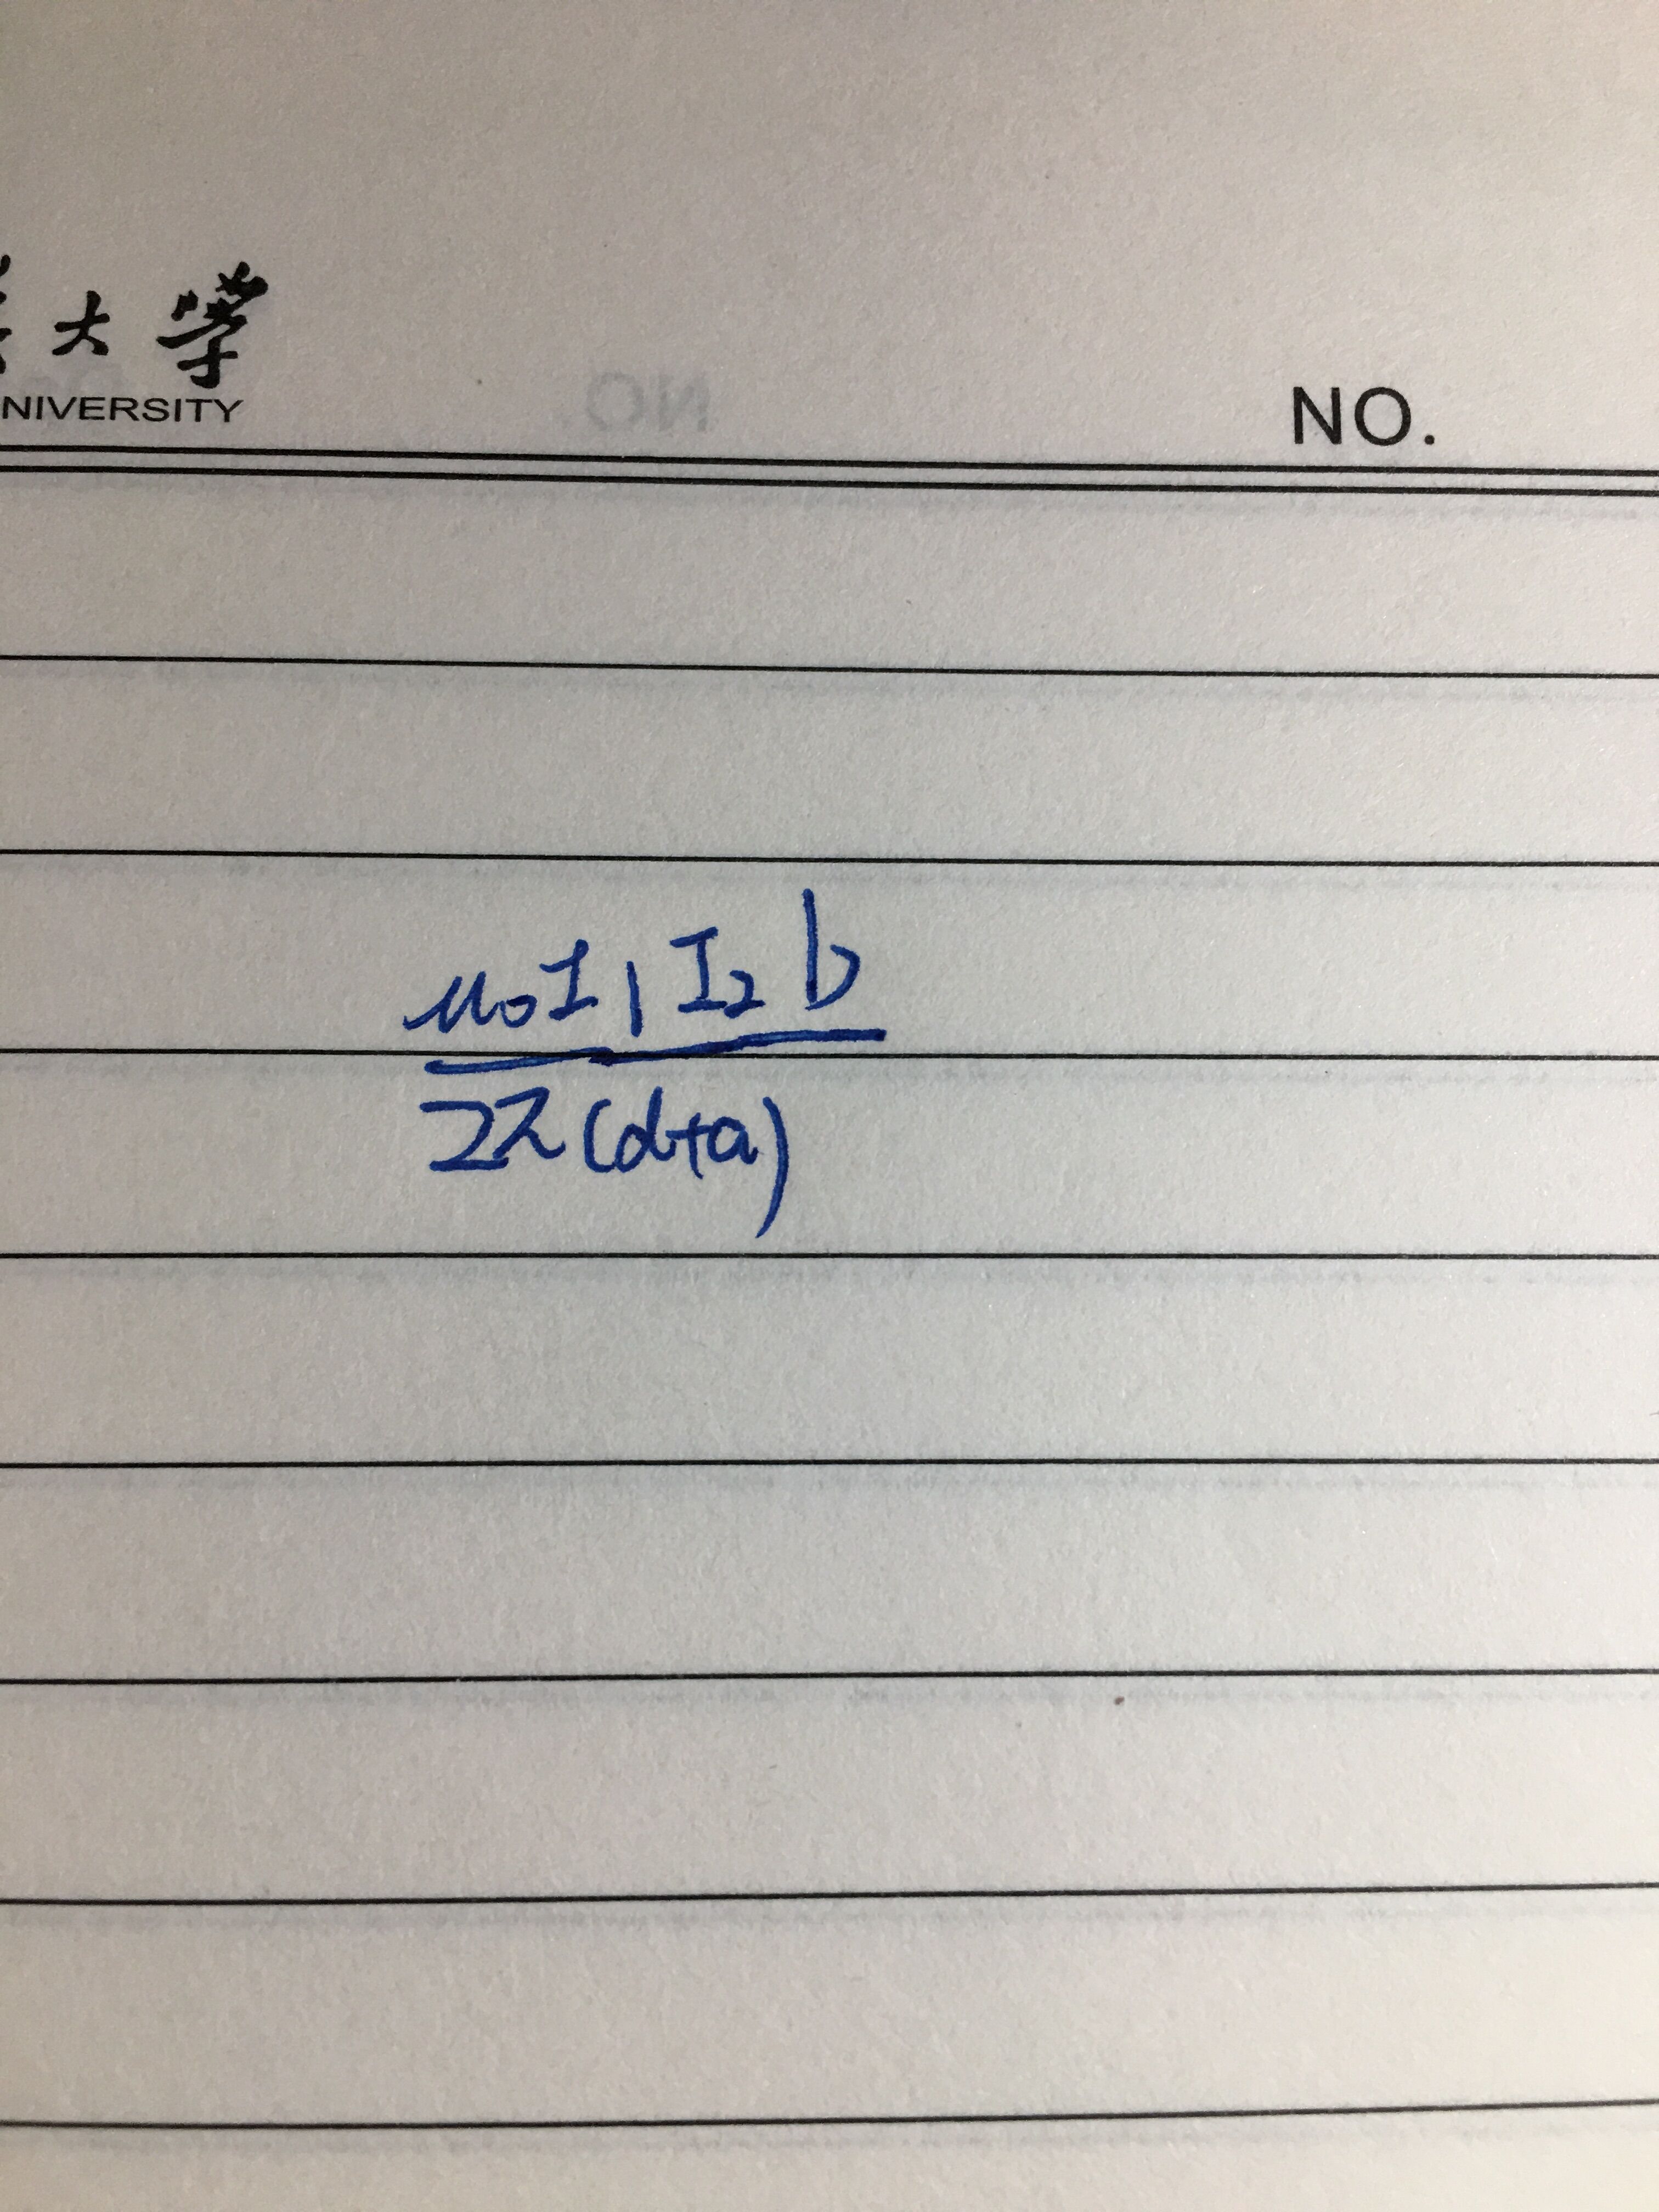 大学
NIVERSITY
NO.
μ₀I₁I₂b
2π(d+a)